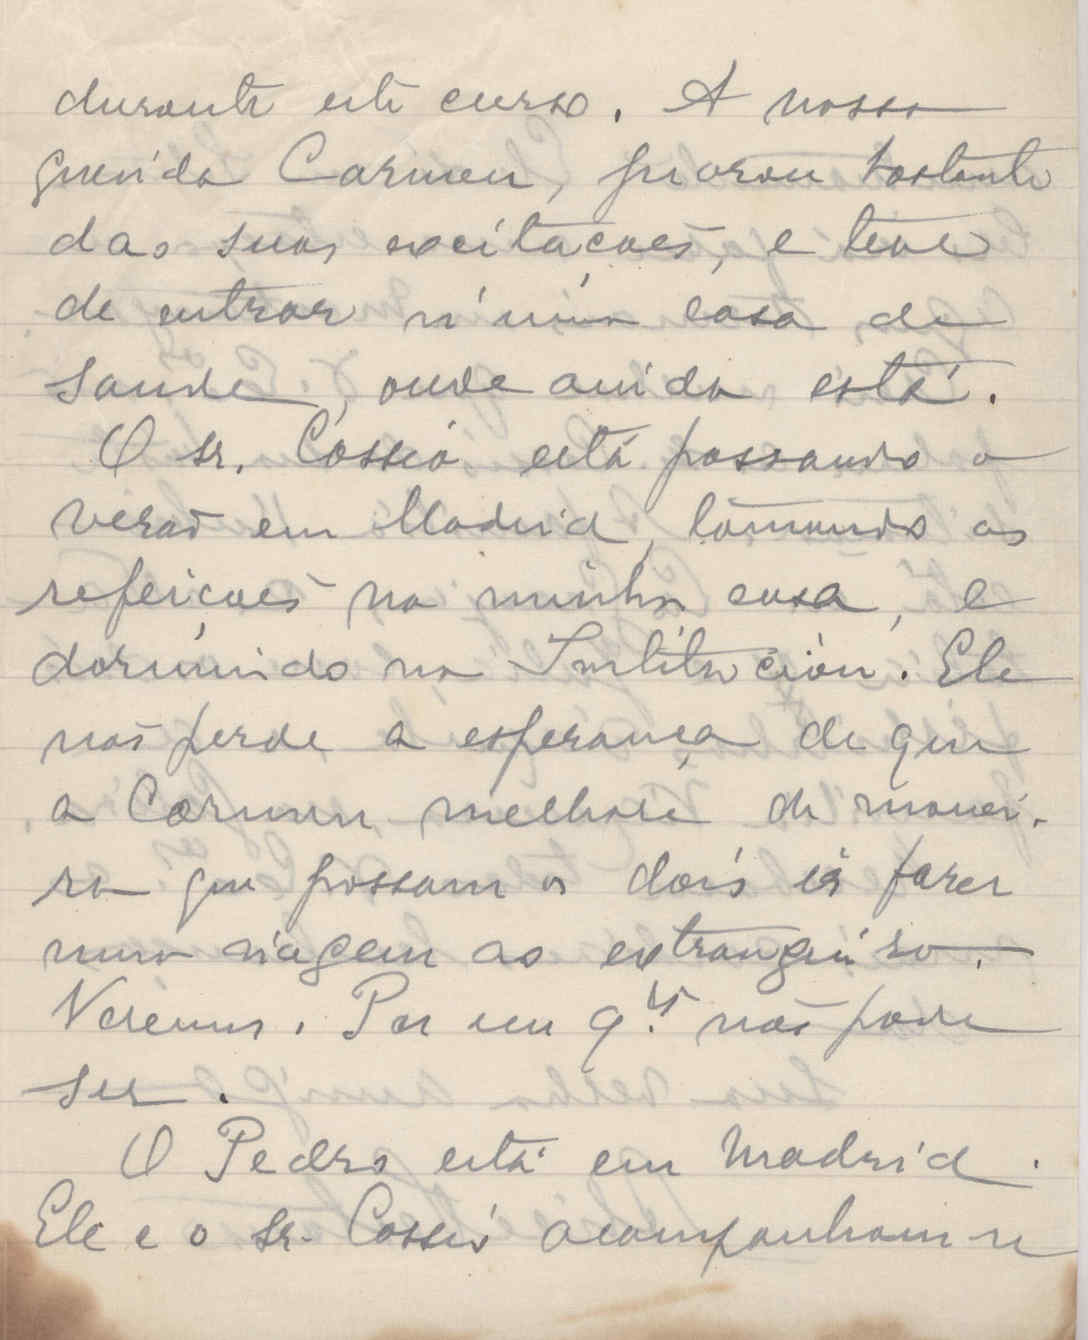 durante este curso. A nossa
querida Carmen, piorou bastante
das suas excitacoẽs, e teve
de entrar n'uma casa de
saude, onde ainda está.
O sr. Cossió está passando o
veraõ em Madrid, tomando as
refeicoẽs na minha casa, e
dormindo na Institución. Ele
naõ perde a esperança de que
a Carmen melhore de manei-
ra que possam os dois ir fazer
uma viagem ao extrangeiro.
Veremos. Por em q.to naõ pode
ser.
O Pedro está em Madrid.
Ele e o sr. Cossió acompanham-n